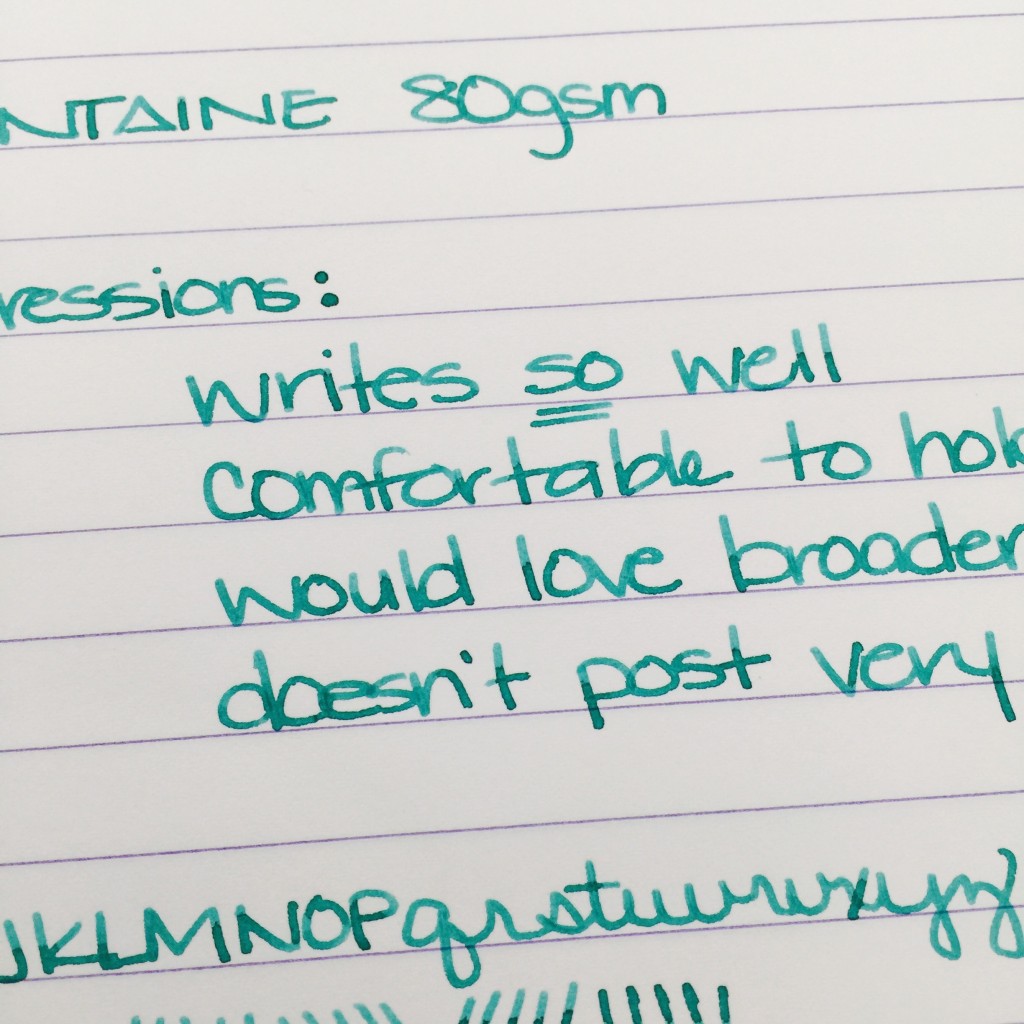 NTAINE 80gsm
ressions:
writes so well
comfortable to hol
would love broader
doesn't post very
JKLMNOPqrstuvwxyz